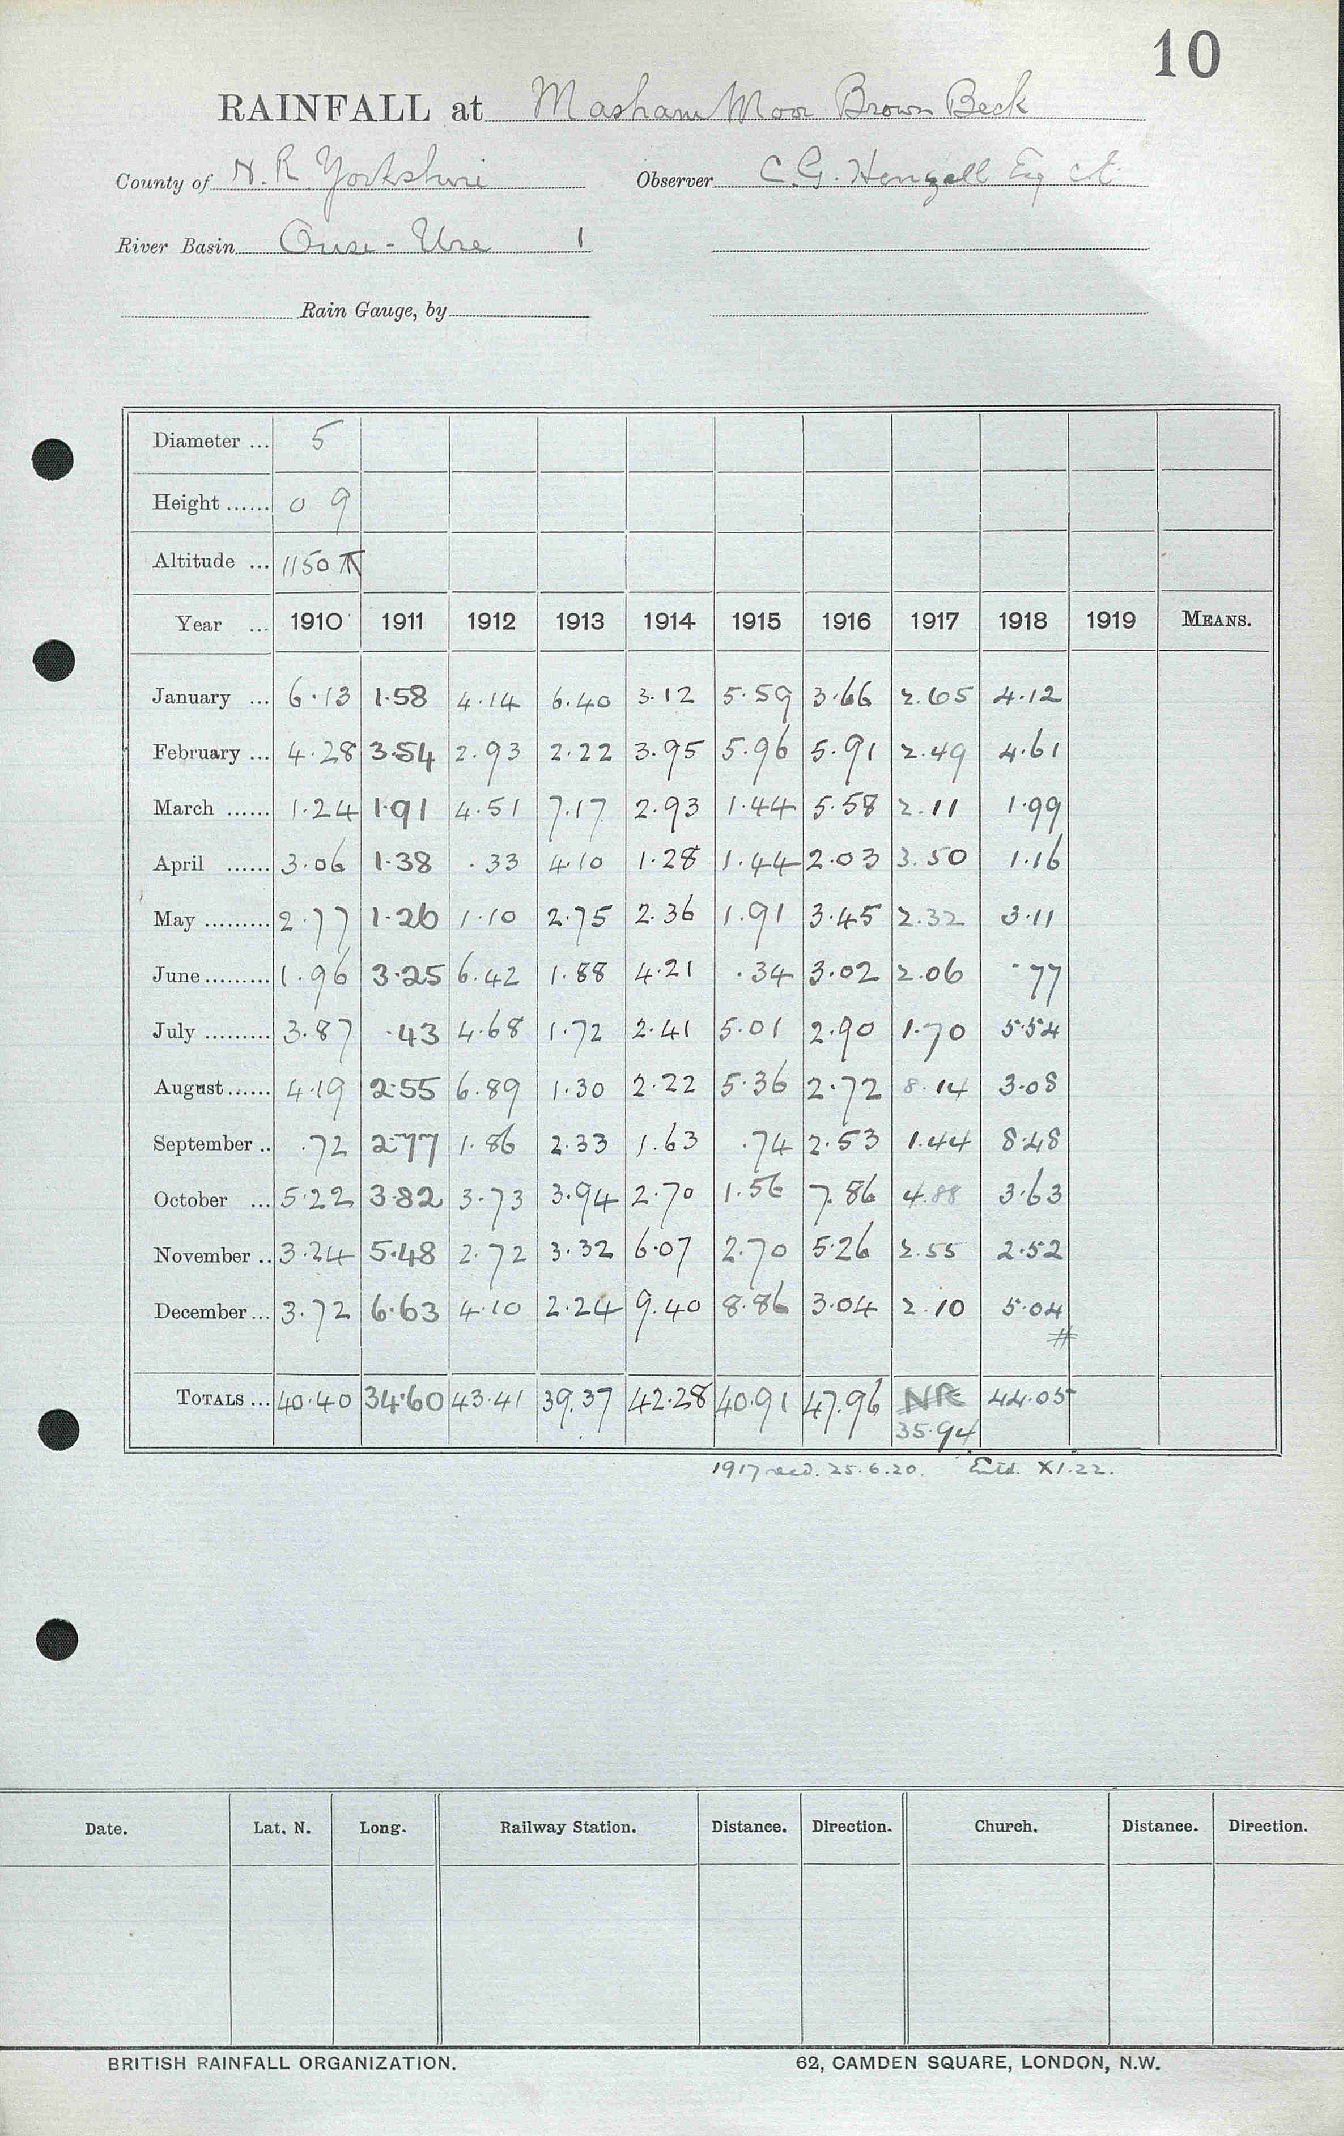 10
RAINFALL at Masham Moor Brown Beck
County of N. R. Yorkshire Observer C. G. Hengall Esq CE.
River Basin Ouse - Ure 1
Rain Gauge, by
Diameter ... 5
Height ...... 0 9
Altitude ... 1150
Year ... 1910 1911 1912 1913 1914 1915 1916 1917 1918 1919 MEANS.
January ... 6.13 1.58 4.14 6.40 3.12 5.59 3.66 2.65 4.12
February ... 4.28 3.54 2.93 2.22 3.95 5.96 5.91 2.49 4.61
March ...... 1.24 1.91 4.51 7.17 2.93 1.44 5.58 2.11 1.99
April ...... 3.06 1.38 .33 4.10 1.28 1.44 2.03 3.50 1.16
May ......... 2.77 1.26 1.10 2.75 2.36 1.91 3.45 2.32 3.11
June ......... 1.96 3.25 6.42 1.88 4.21 .34 3.02 2.06 .77
July ......... 3.87 .43 4.68 1.72 2.41 5.01 2.90 1.70 5.54
August ...... 4.19 2.55 6.89 1.30 2.22 5.36 2.72 8.14 3.08
September .. .72 2.77 1.86 2.33 1.63 .74 2.53 1.44 8.48
October ... 5.22 3.82 3.73 3.94 2.70 1.56 7.86 4.88 3.63
November .. 3.24 5.48 2.72 3.32 6.07 2.70 5.26 2.55 2.52
December ... 3.72 6.63 4.10 2.24 9.40 8.86 3.04 2.10 5.04
#
TOTALS ... 40.40 34.60 43.41 39.37 42.28 40.91 47.96 NR 44.05
35.94
1917 recd. 25.6.20. Entd. XI.22.
Date. Lat. N. Long. Railway Station. Distance. Direction. Church. Distance. Direction.
BRITISH RAINFALL ORGANIZATION. 62, CAMDEN SQUARE, LONDON, N.W.